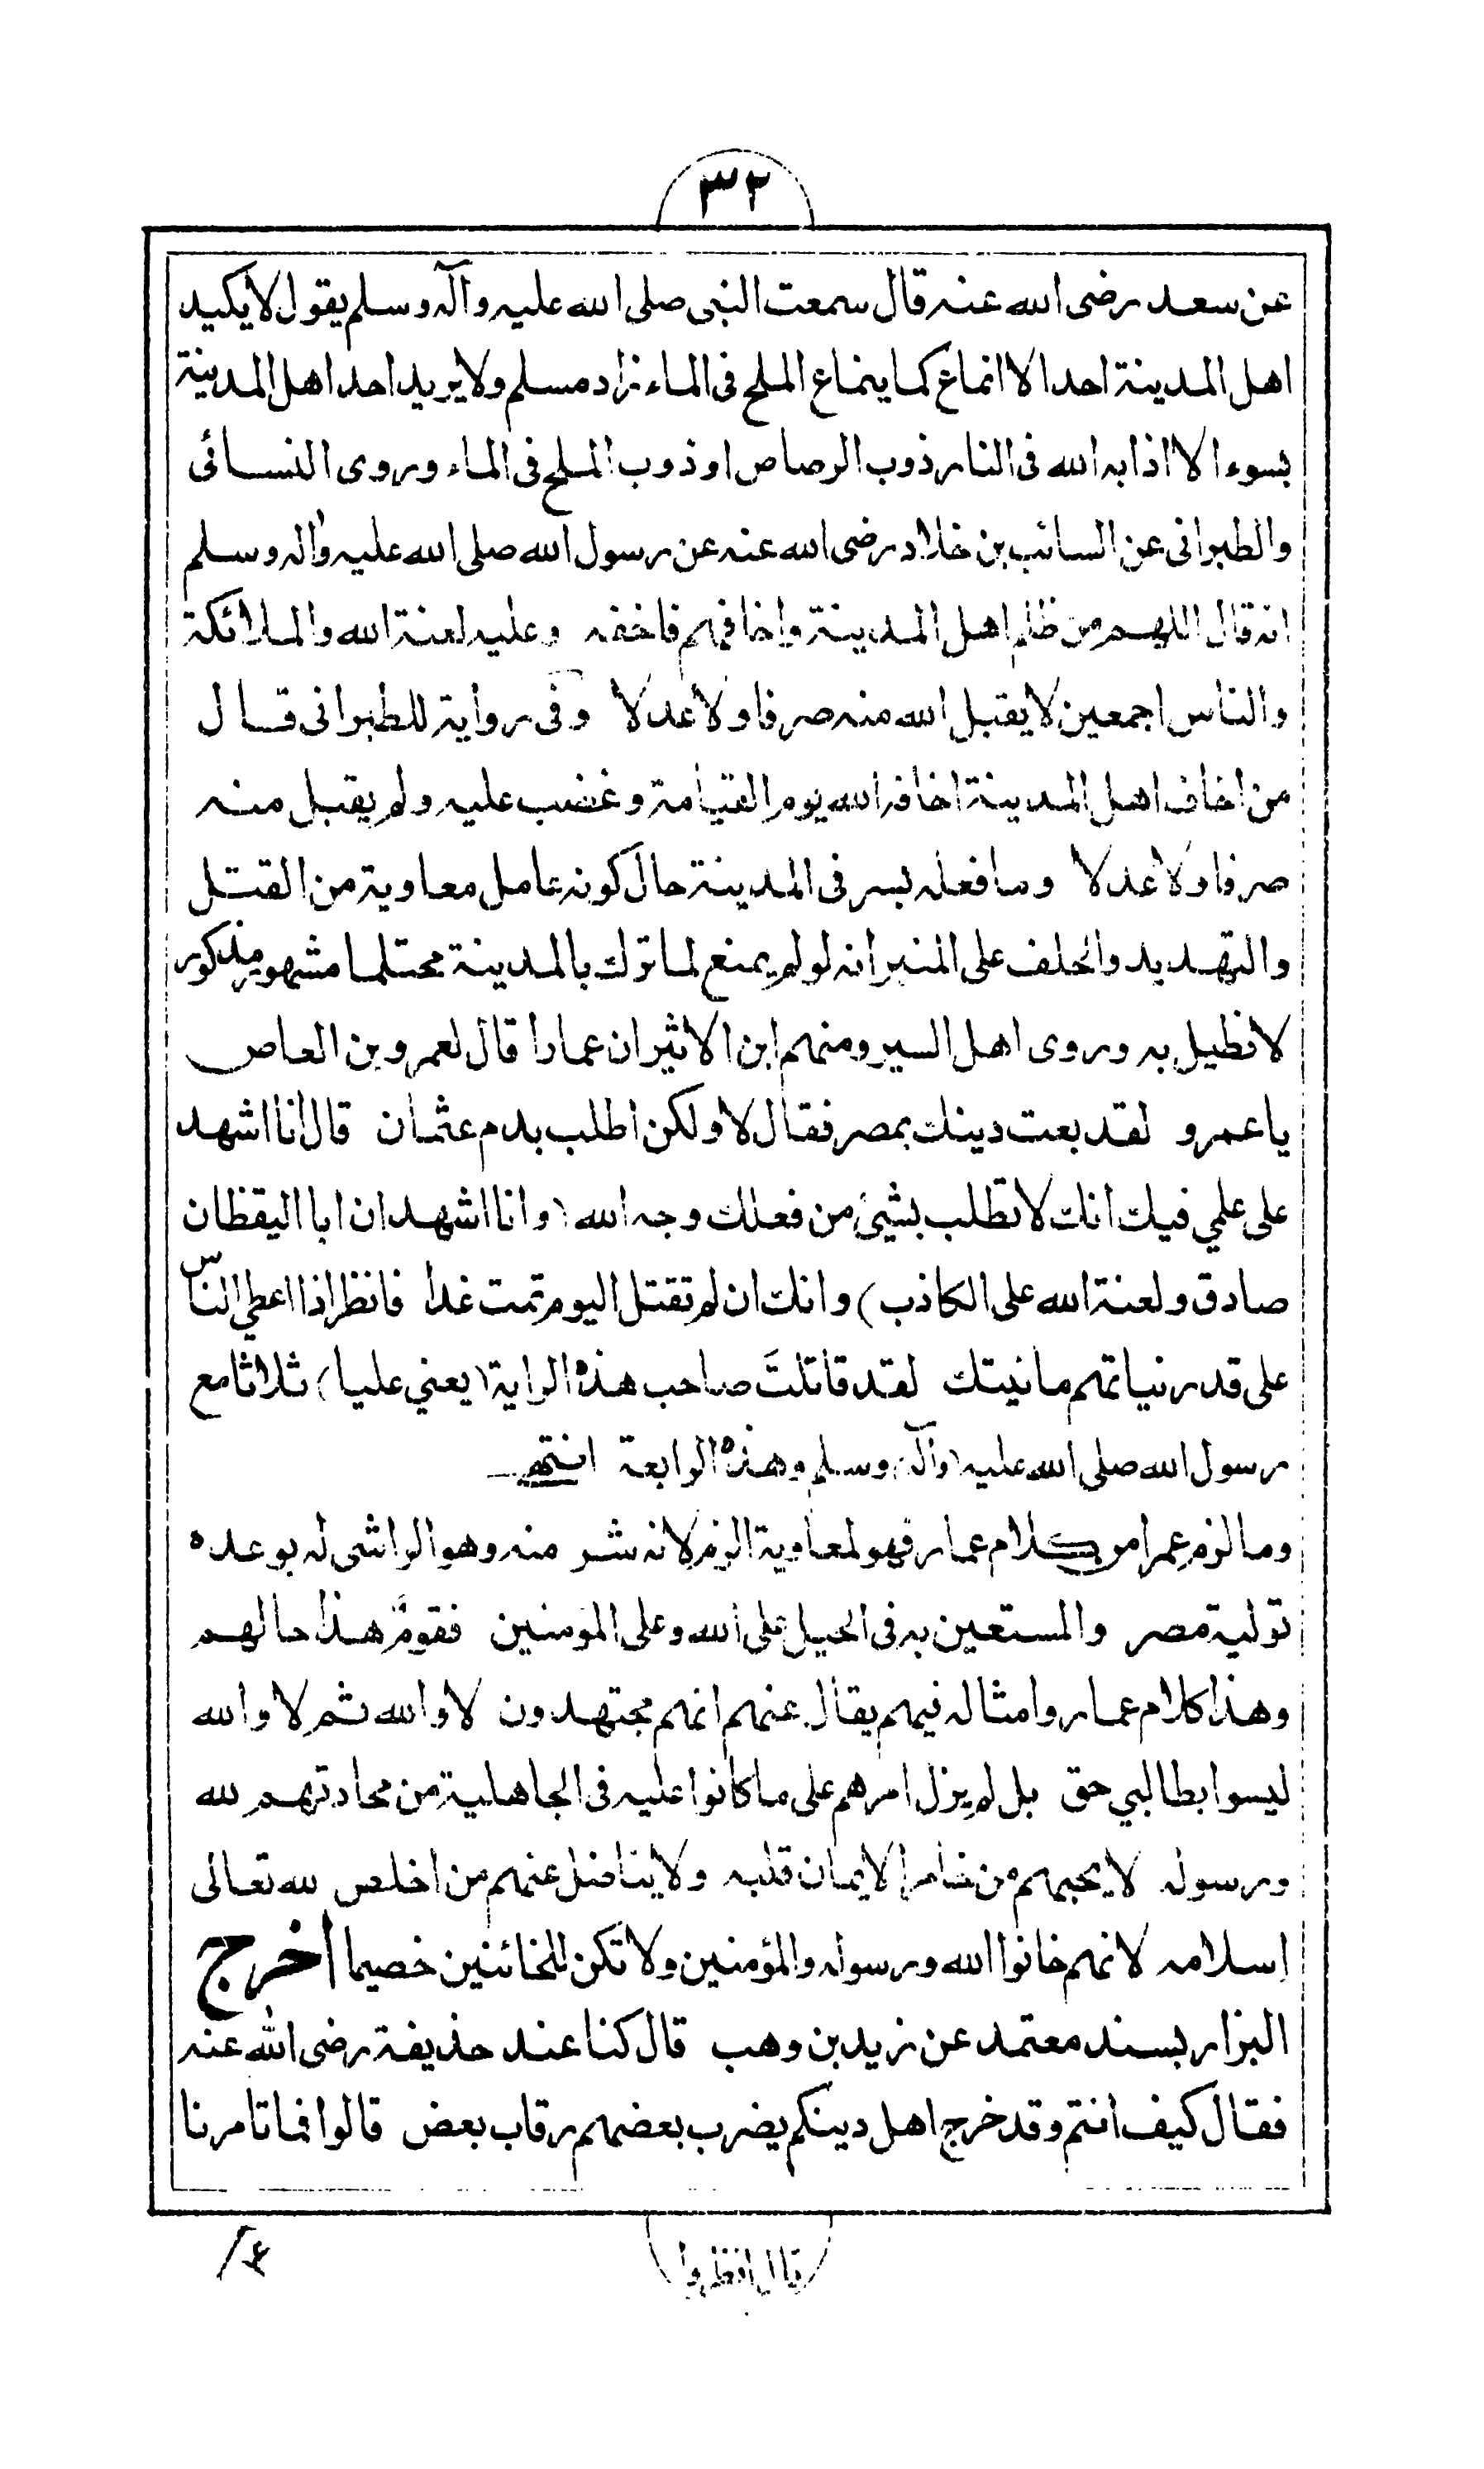 ٣٢
عن سعد رضى الله عنه قال سمعت النبى صلى الله عليه وآله وسلم يقول لا يكيد
اهل المدينة احد الا انماع كما ينماع الملح فى الماء زاد مسلم ولا يريد احد اهل المدينة
بسوء الا اذابه الله فى النار ذوب الرصاص او ذوب الملح فى الماء وروى النسائى
والطبرانى عن السائب بن خلاد رضى الله عنه عن رسول الله صلى الله عليه وآله وسلم
انه قال اللهم من ظلم اهل المدينة واخافهم فاخفه وعليه لعنة الله والملائكة
والناس اجمعين لا يقبل الله منه صرفا ولا عدلا وفى رواية للطبرانى قال
من اخاف اهل المدينة اخافه الله يوم القيامة وغضب عليه ولم يقبل منه
صرفا ولا عدلا وما فعله بسر فى المدينة حال كونه عامل معاوية من القتل
والتهديد والحلف على المنبر انه لو لم يمنع لما ترك بالمدينة محتلما مشهور مذكور
لا نطيل به وروى اهل السير ومنهم ابن الاثير ان عمارا قال لعمرو بن العاص
يا عمرو لقد بعت دينك بمصر فقال لا ولكن اطلب بدم عثمان قال انا اشهد
على علمي فيك انك لا تطلب بشيئ من فعلك وجه الله (وانا اشهد ان ابا اليقظان
صادق ولعنة الله على الكاذب) وانك ان لم تقتل اليوم تمت غدا فانظر اذا اعطي الناس
على قدر نياتهم ما نيتك لقد قاتلتَ صاحب هذه الراية (يعني عليا) ثلاثا مع
رسول الله صلى الله عليه (وآله) وسلم وهذه الرابعة انتهى
وما لزم عمرا من كلام عمار فهو لمعاوية الزم لانه شر منه وهو الراشى له بوعده
تولية مصر والمستعين به فى الحيل على الله وعلى المؤمنين فقومٌ هذا حالهم
وهذا كلام عمار وامثاله فيهم يقال عنهم انهم مجتهدون لا والله ثم لا والله
ليسوا بطالبي حق بل لم يزل امرهم على ما كانوا عليه فى الجاهلية من محادتهم لله
ورسوله لا يحبهم من خامر الايمان قلبه ولا يناضل عنهم من اخلص لله تعالى
اسلامه لانهم خانوا الله ورسوله والمؤمنين ولا تكن للخائنين خصيما اخرج
البزار بسند معتمد عن زيد بن وهب قال كنا عند حذيفة رضى الله عنه
فقال كيف انتم وقد خرج اهل دينكم يضرب بعضهم رقاب بعض قالوا فما تامرنا
قال انظروا